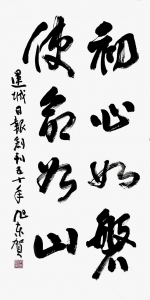 初心如磐
使命如山
运城日報創刊五十年 旭東賀